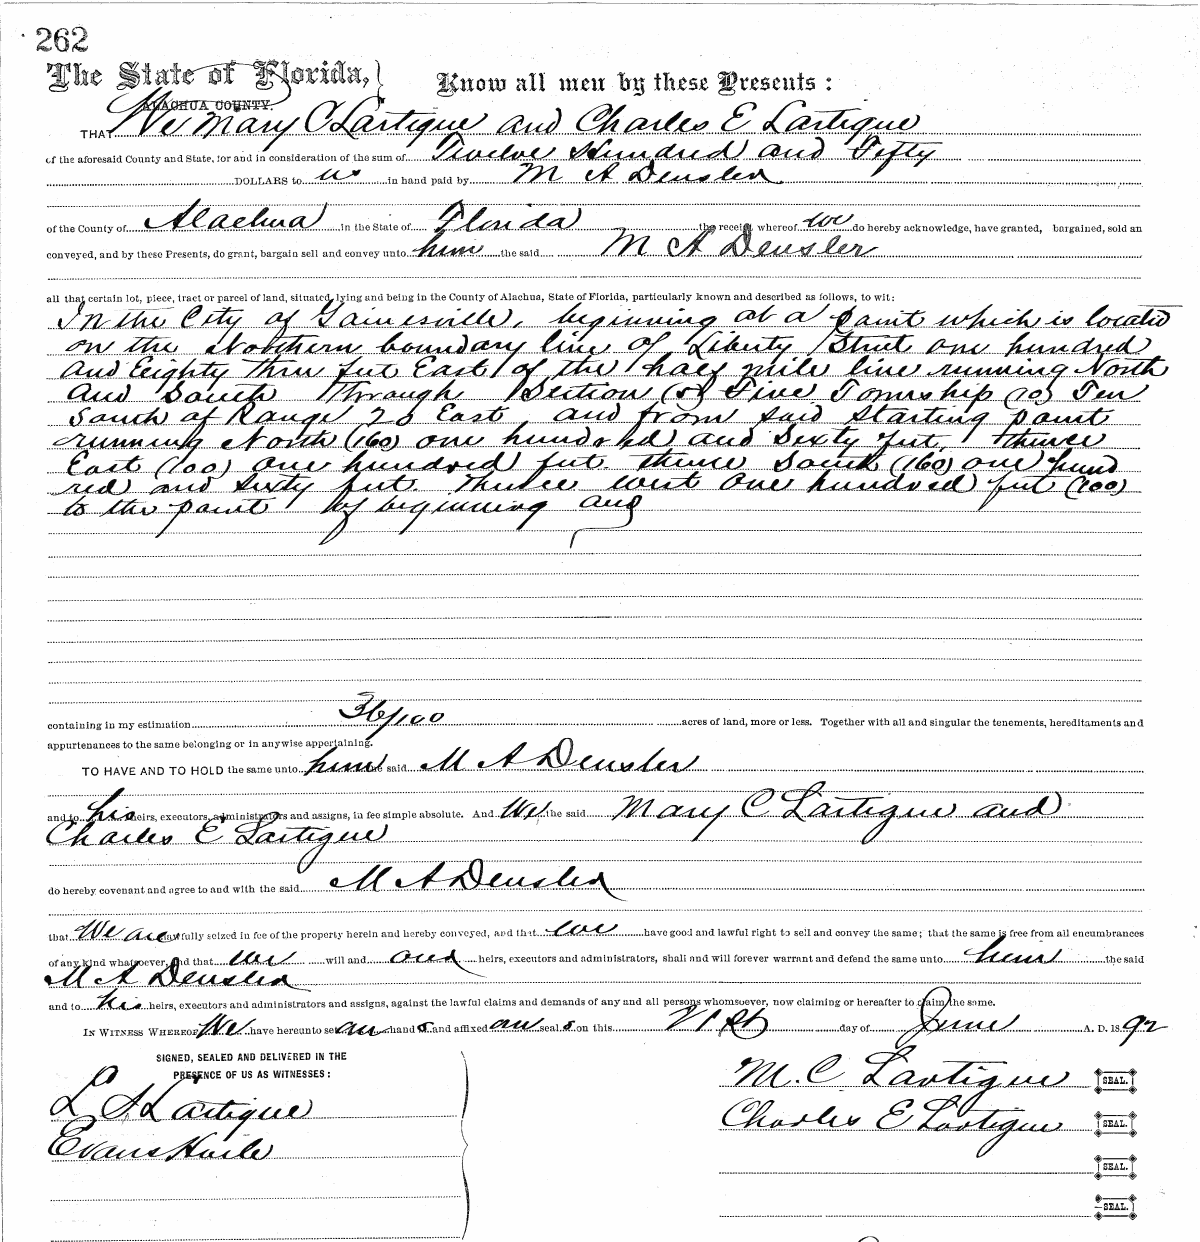 262
The State of Florida, Know all men by these Presents:
ALACHUA COUNTY.
THAT We Mary C Lartigue and Charles E Lartigue
of the aforesaid County and State, for and in consideration of the sum of Twelve Hundred and Fifty
DOLLARS to us in hand paid by M A Deusler
of the County of Alachua in the State of Florida the receipt whereof we do hereby acknowledge, have granted, bargained, sold an
conveyed, and by these Presents, do grant, bargain sell and convey unto him the said M A Deusler
all that certain lot, piece, tract or parcel of land, situated, lying and being in the County of Alachua, State of Florida, particularly known and described as follows, to wit:
In the City of Gainesville, beginning at a point which is located
on the Northern boundary line of Liberty Street one hundred
and Eighty three feet East of the half mile line running North
and South through Section (5) Five Township (10) Ten
South of Range 20 East and from said starting point
running North (160) one hundred and Sixty feet, thence
East (100) one hundred feet. thence South (160) one hund
red and sixty feet. Thence west one hundred feet (100)
to the point of beginning and
containing in my estimation 36/100 acres of land, more or less. Together with all and singular the tenements, hereditaments and
appurtenances to the same belonging or in anywise appertaining.
TO HAVE AND TO HOLD the same unto him the said M A Deusler
and to his heirs, executors, administrators and assigns, in fee simple absolute. And We the said Mary C Lartigue and
Charles E Lartigue
do hereby covenant and agree to and with the said M A Deusler
that We are lawfully seized in fee of the property herein and hereby conveyed, and that we have good and lawful right to sell and convey the same; that the same is free from all encumbrances
of any kind whatsoever, and that we will and our heirs, executors and administrators, shall and will forever warrant and defend the same unto him the said
M A Deusler
and to his heirs, executors and administrators and assigns, against the lawful claims and demands of any and all persons whomsoever, now claiming or hereafter to claim the same.
IN WITNESS WHEREOF We have hereunto set our hand s and affixed our seal s on this 21st day of June A. D. 18 92
SIGNED, SEALED AND DELIVERED IN THE
PRESENCE OF US AS WITNESSES:
M. C Lartigue SEAL.
L S Lartigue
Charles E Lartigue SEAL.
Evans Haile
SEAL.
SEAL.